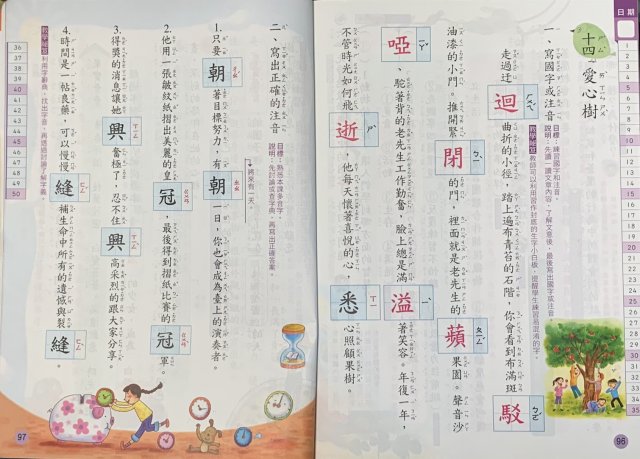 十四 愛心樹
日期
一、寫國字或注音
目標：練習國字和注音。
說明：先讀一讀文章內容，了解文意後，最後寫出國字或注音。
教學補給
教師可以利用習作封底的生字小白板，提醒學生練習易混淆的字。
走過迂迴曲折的小徑，踏上遍布青苔的石階，你會看到布滿斑駁
油漆的小門。推開緊閉的門，裡面就是老先生的蘋果園。聲音沙
啞、駝著背的老先生工作勤奮，臉上總是滿溢著笑容。年復一年，
不管時光如何飛逝，他每天懷著喜悅的心，悉心照顧果樹。
96
二、寫出正確的注音
目標：熟悉本課多音字。
說明：先討論或查字典，再寫出正確答案。
將來有一天。
1.只要朝著目標努力，有朝一日，你也會成為臺上的演奏者。
2.他用一張皺紋紙摺出美麗的皇冠，最後得到摺紙比賽的冠軍。
3.得獎的消息讓她興奮極了，忍不住興高采烈的跟大家分享。
4.時間是一帖良藥，可以慢慢縫補生命中所有的遺憾與裂縫。
教學補給
利用字辭典，找出字音，再透過討論了解字義。
97
1
2
3
4
5
6
7
8
9
10
11
12
13
14
15
16
17
18
19
20
21
22
23
24
25
26
27
28
29
30
31
32
33
34
35
36
37
38
39
40
41
42
43
44
45
46
47
48
49
50